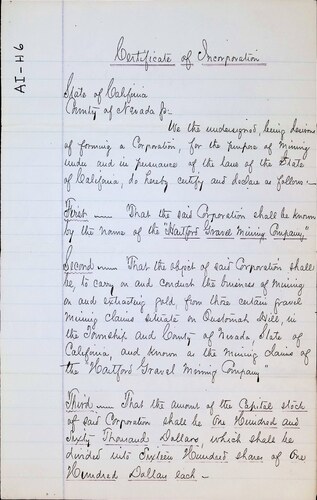 AI-H6
Certificate of Incorporation
State of California
County of Nevada ss.
We the undersigned, being desirous
of forming a Corporation, for the purpose of Mining
under and in persuance of the laws of the State
of California, do hereby certify and declare as follows:—
First —— That the said Corporation shall be known
by the name of the "Hartford Gravel Mining Company"
Second —— That the object of said Corporation shall
be, to carry on and conduct the business of mining
on and extracting gold, from those certain gravel
mining claims situate on Customah Hill, in
the Township and County of Nevada, State of
California, and known as the mining claims of
the "Hartford Gravel Mining Company"
Third — That the amount of the Capital stock
of said Corporation shall be One Hundred and
Sixty Thousand Dollars, which shall be
divided into Sixteen Hundred shares of One
Hundred Dollars each —